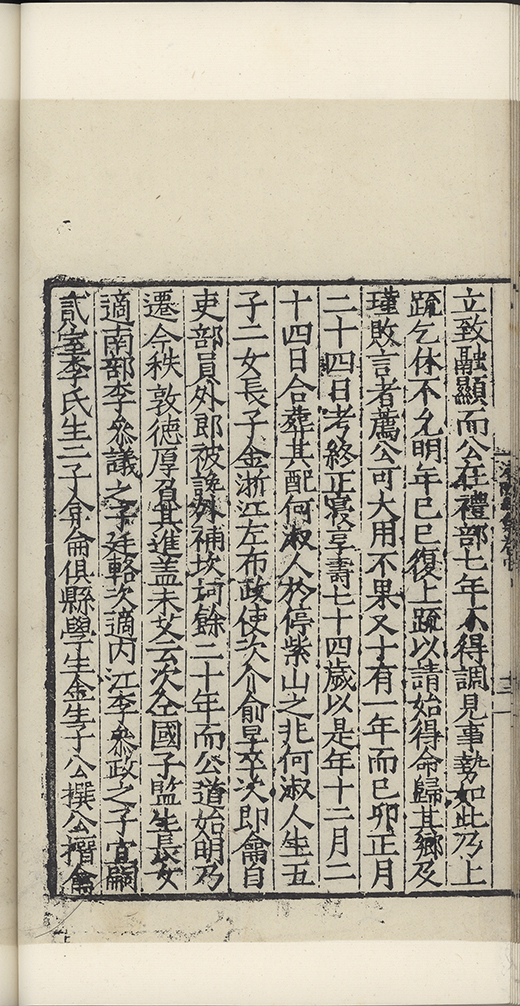 立致融顯而公在禮部七年不得調見事勢如此乃上
疏乞休不允明年己巳復上疏以請始得命歸其鄉及
瑾敗言者薦公可大用不果又十有一年而己卯正月
二十四日考終正寢享壽七十四歲以是年十二月二
十四日合葬其配何淑人於停紫山之兆何淑人生五
子二女長子金浙江左布政使次介俞早卒次即龠自
吏部員外郎被讒外補坎坷餘二十年而公道始明乃
遷今秩敦徳厚負其進盖未艾云次仝國子監生長女
適南部李叅議之子廷輅次適内江李叅政之子宜嗣
貳室李氏生二子侖俱縣學生金生子公撰公搢龠